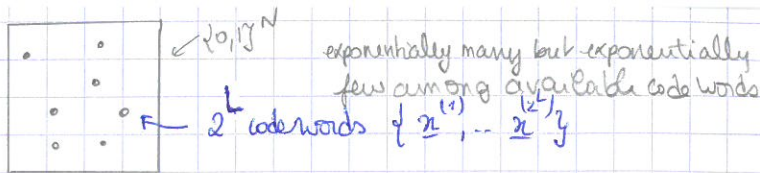 {0,1}^N exponentially many but exponentially
few among available code words
2^L codewords { x^(1), .. x^(2^L) }